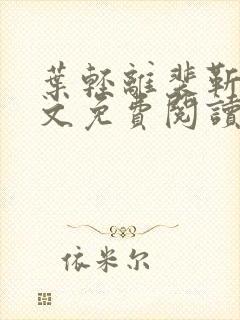 葉輕離裴靳
文免費閱讀
依米尔